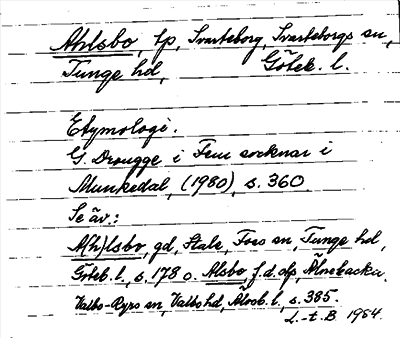 Ahlsbo, lp, Svarteborg, Svarteborgs sn,
Tunge hd, Göteb. l.
Etymologi.
G. Drougge i Fem socknar i
Munkedal, (1980), s. 360
Se äv.:
A(h)lsbo, gd, Stale, Foss sn Tunge hd,
Göteb. l., s. 178 o. Alsbo, f.d. dp, Älvebacka
Valbo-Ryrs sn, Valbo hd, Älvsb. l., s. 385.
L.-t. B 1984.